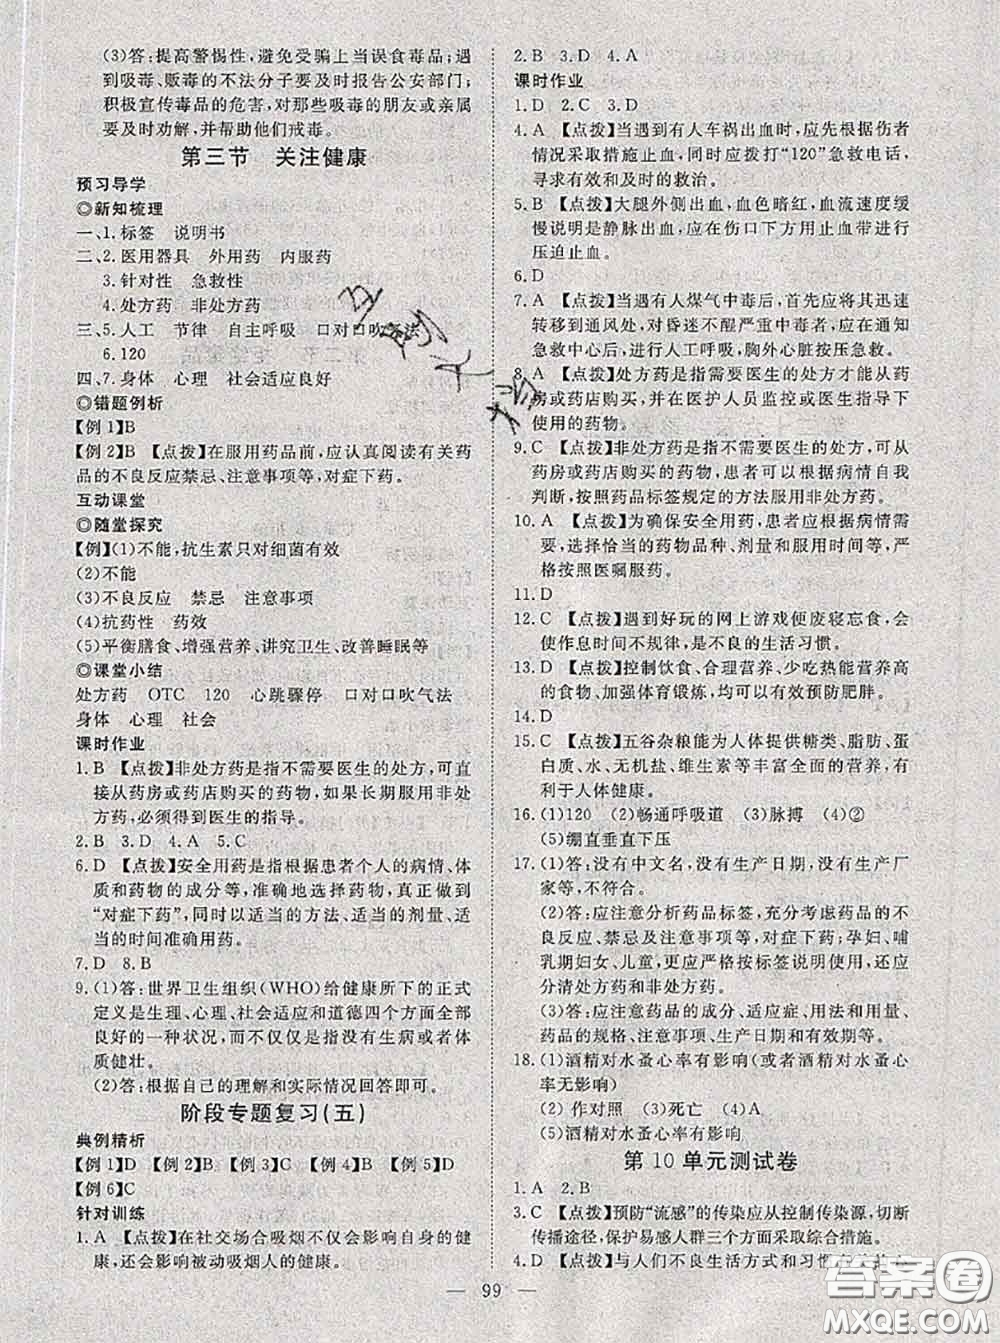 (3)答:提高警惕性,避免受骗上当误食毒品;遇
到吸毒、贩毒的不法分子要及时报告公安部门;
积极宣传毒品的危害,对那些吸毒的朋友或亲属
要及时劝解,并帮助他们戒毒。
第三节 关注健康
预习导学
◎新知梳理
一、1.标签 说明书
二、2.医用器具 外用药 内服药
3.针对性 急救性
4.处方药 非处方药
三、5.人工 节律 自主呼吸 口对口吹气法
6.120
四、7.身体 心理 社会适应良好
◎错题例析
【例1】B
【例2】B 【点拨】在服用药品前,应认真阅读有关药
品的不良反应禁忌、注意事项等,对症下药。
互动课堂
◎随堂探究
【例】(1)不能,抗生素只对细菌有效
(2)不能
(3)不良反应 禁忌 注意事项
(4)抗药性 药效
(5)平衡膳食、增强营养、讲究卫生、改善睡眠等
◎课堂小结
处方药 OTC 120 心跳骤停 口对口吹气法
身体 心理 社会
课时作业
1.B 【点拨】非处方药是指不需要医生的处方,可
直接从药房或药店购买的药物,如果长期服用非处
方药,必须得到医生的指导。
2.B 3.D 4.A 5.C
6.D 【点拨】安全用药是指根据患者个人的病情、体
质和药物的成分等,准确地选择药物,真正做到
“对症下药”,同时以适当的方法、适当的剂量、适
当的时间准确用药。
7.D 8.B
9.(1)答:世界卫生组织(WHO)给健康所下的正式
定义是生理、心理、社会适应和道德四个方面全部
良好的一种状况,而不仅仅是指没有生病或者体
质健壮。
(2)答:根据自己的理解和实际情况回答即可。
阶段专题复习(五)
典例精析
【例1】D 【例2】B 【例3】C 【例4】C 【例5】D
【例6】C
针对训练
1.A 【点拨】在社交场合吸烟不仅会影响自身的健
康,还会影响被动吸烟人的健康。
2.B 3.D 4.A
课时作业
1.D 2.C 3.D
4.A 【点拨】当遇到有人车祸出血时,应先根据伤者
情况采取措施止血,同时应拨打“120”急救电话,
寻求有效和及时的救治。
5.B 【点拨】大腿外侧出血,血色暗红,血流速度缓
慢说明是静脉出血,应在伤口下方用止血带进行
压迫止血。
6.D
7.A 【点拨】当遇有人煤气中毒后,首先应将其迅速
转移到通风处,对昏迷不醒严重中毒者,应在通知
急救中心后,进行人工呼吸,胸外心脏按压急救。
8.A 【点拨】处方药是指需要医生的处方才能从药
房或药店购买,并在医护人员监控或医生指导下
使用的药物。
9.C 【点拨】非处方药是指不需医生的处方,可以从
药房或药店购买的药物,患者可以根据病情自我
判断,按照药品标签规定的方法服用非处方药。
10.A 【点拨】为确保安全用药,患者应根据病情需
要,选择恰当的药物品种、剂量和服用时间等,严
格按照医嘱服药。
11.D
12.C 【点拨】遇到好玩的网上游戏便废寝忘食,会
使作息时间不规律,是不良的生活习惯。
13.D 【点拨】控制饮食、合理营养、少吃热能营养高
的食物、加强体育锻炼,均可以有效预防肥胖。
14.D
15.C 【点拨】五谷杂粮能为人体提供糖类、脂肪、蛋
白质、水、无机盐、维生素等丰富全面的营养,有
利于人体健康。
16.(1)120 (2)畅通呼吸道 (3)脉搏 (4)②
(5)绷直垂直下压
17.(1)答:没有中文名,没有生产日期,没有生产厂
家等,不符合。
(2)答:应注意分析药品标签,交待服用药品的不
良反应、禁忌及注意事项等,对症下药;孕妇、哺
乳期妇女、儿童,更应严格按标签说明服药,还应
分清处方药和非处方药。
(3)答:应注意药品的成分、适应症、用法用量、
药品的规格、注意事项、生产日期和有效期等。
18.(1)酒精对水蚤心率有影响(或者酒精对水蚤心
率无影响)
(2)作对照 (3)死亡 (4)A
(5)酒精对水蚤心率有影响
第10单元测试卷
1.A 2.B
3.C 【点拨】预防“流感”的传染应从控制传染源,切断
传播途径,保护易感人群三个方面采取综合措施。
4.D 【点拨】与人们不良生活方式和习惯
99
答案圈
MXQE.COM